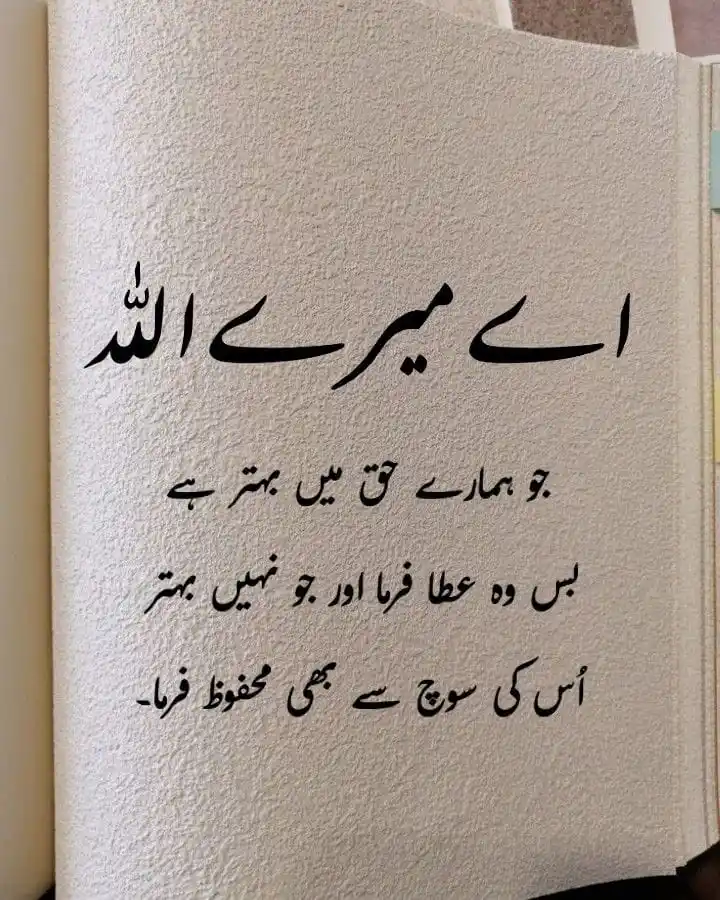 اے میرے اللہ
جو ہمارے حق میں بہتر ہے
بس وہ عطا فرما اور جو نہیں بہتر
اُس کی سوچ سے بھی محفوظ فرما۔